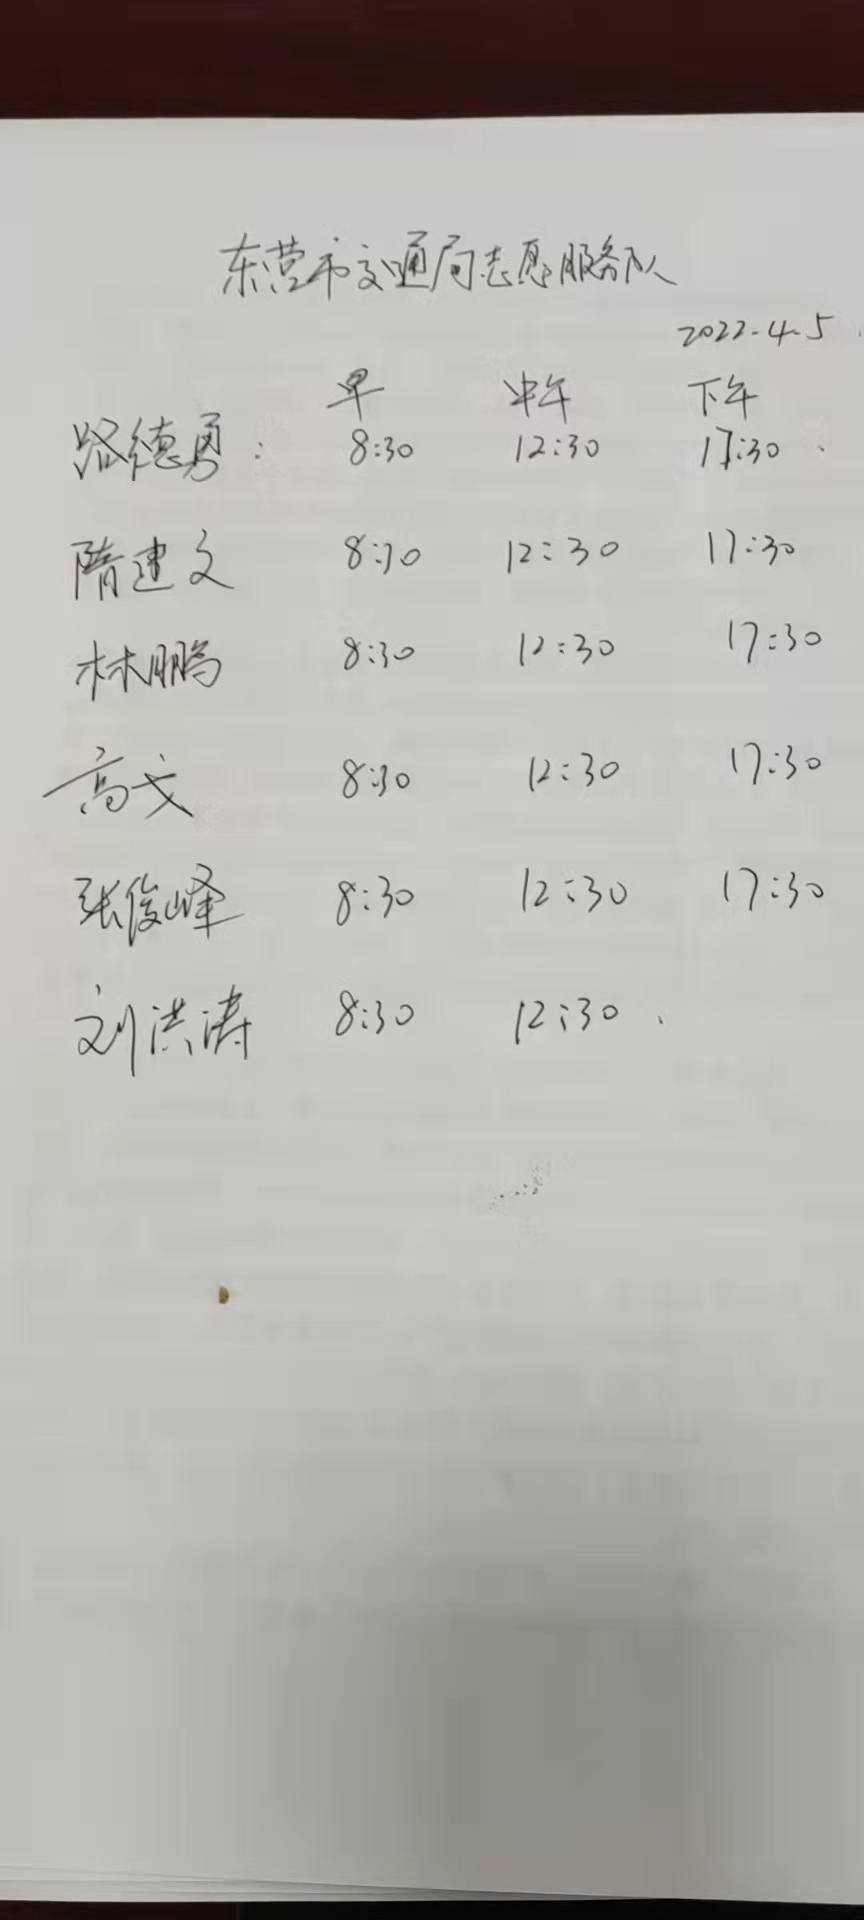 东营市交通局志愿服务队
2022.4.5
早 中午 下午
路德勇: 8:30 12:30 17:30
隋建文 8:30 12:30 17:30
林鹏 8:30 12:30 17:30
高戈 8:30 12:30 17:30
张俊峰 8:30 12:30 17:30
刘洪涛 8:30 12:30